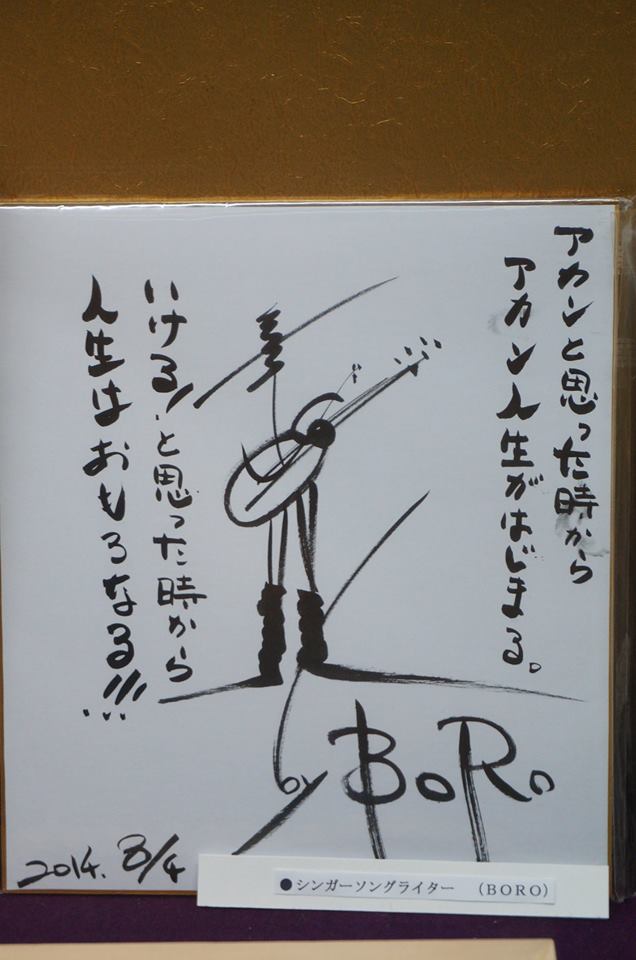 アカンと思った時から
アカン人生がはじまる。
いける!と思った時から
人生はおもろなる!!!
by BORO
2014. 8/4
●シンガーソングライター (BORO)